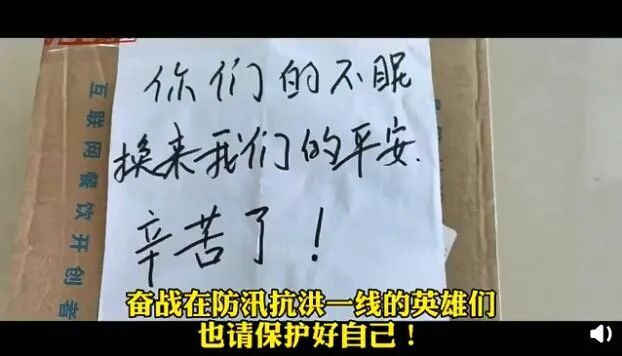 你们的不眠
换来我们的平安.
辛苦了！
互联网餐饮开创者
奋战在防汛抗洪一线的英雄们
也请保护好自己！